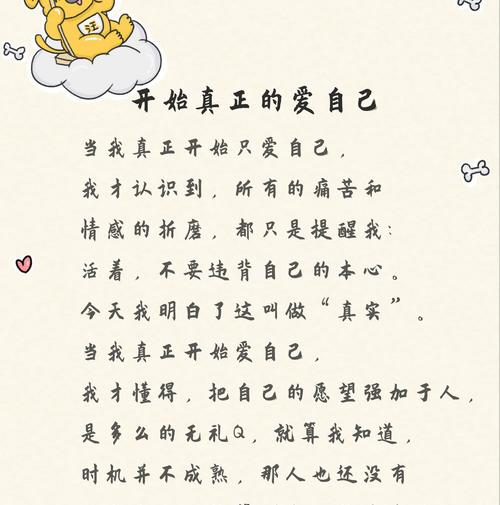 汪
开始真正的爱自己
当我真正开始只爱自己，
我才认识到，所有的痛苦和
情感的折磨，都只是提醒我：
活着，不要违背自己的本心。
今天我明白了这叫做“真实”。
当我真正开始爱自己，
我才懂得，把自己的愿望强加于人，
是多么的无礼Q，就算我知道，
时机并不成熟，那人也还没有